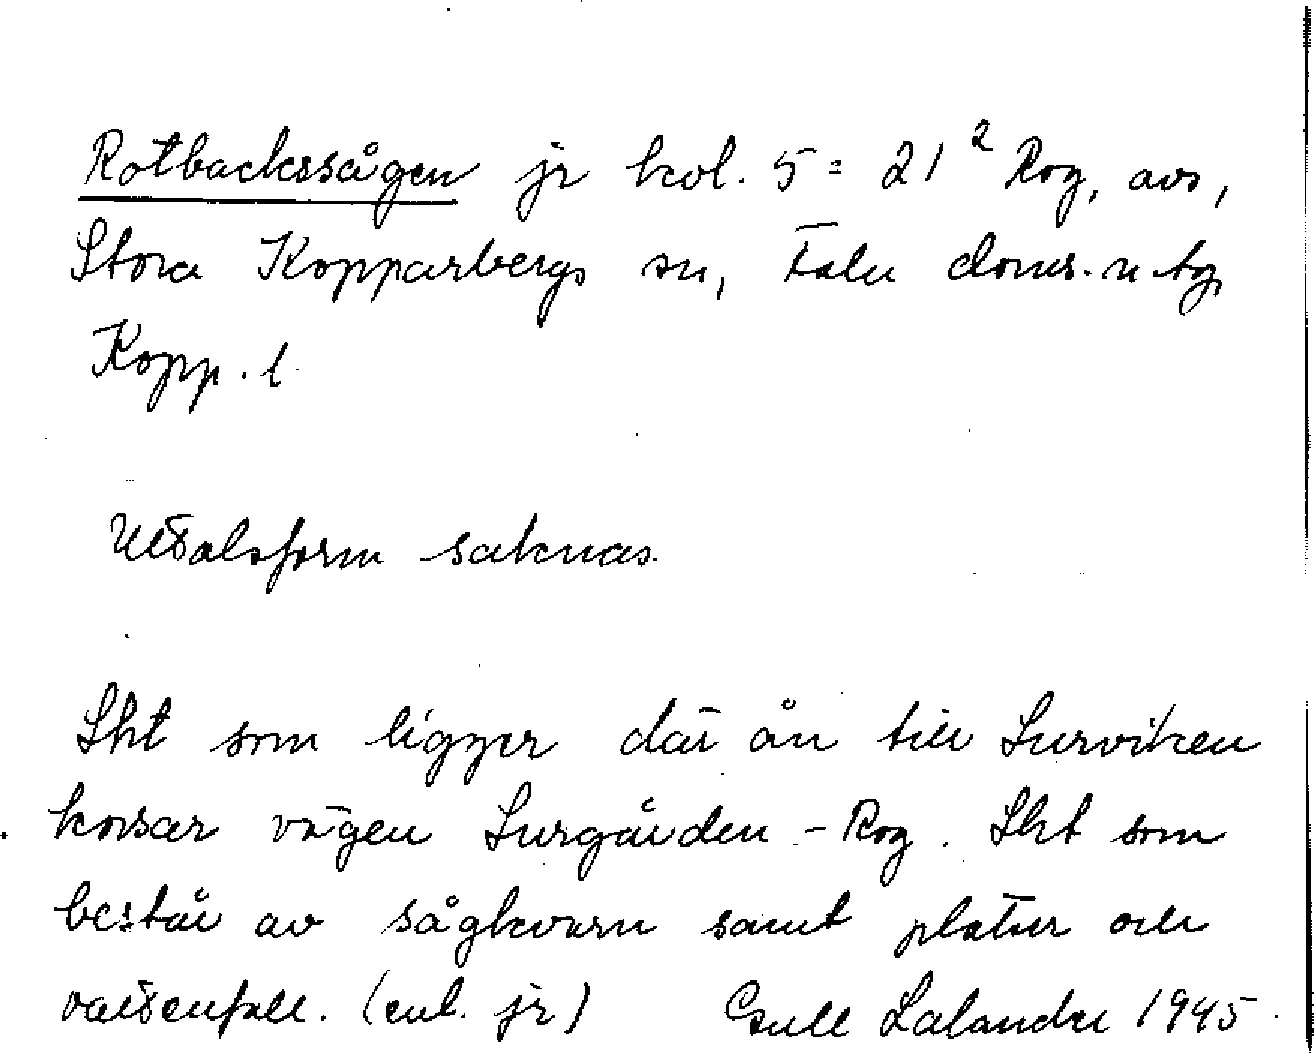 Rotbackssågen jr kol. 5 = 21² Rog, avs,
Stora Kopparbergs sn, Falu doms. n tg
Kopp. l.
Uttalsform saknas.
Lht som ligger där ån till Lurviken
korsar vägen Lurgården - Rog. Lht som
består av sågkvarn samt platser och
vattenfall. (enl. jr) Gull Lalander 1945